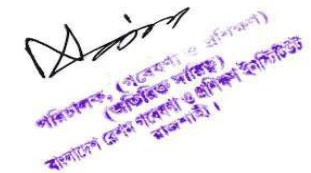 পরিচালক, (গবেষণা ও প্রশিক্ষণ)
(অতিরিক্ত দায়িত্ব)
বাংলাদেশ রেশম গবেষণা ও প্রশিক্ষণ ইনস্টিটিউট
রাজশাহী।